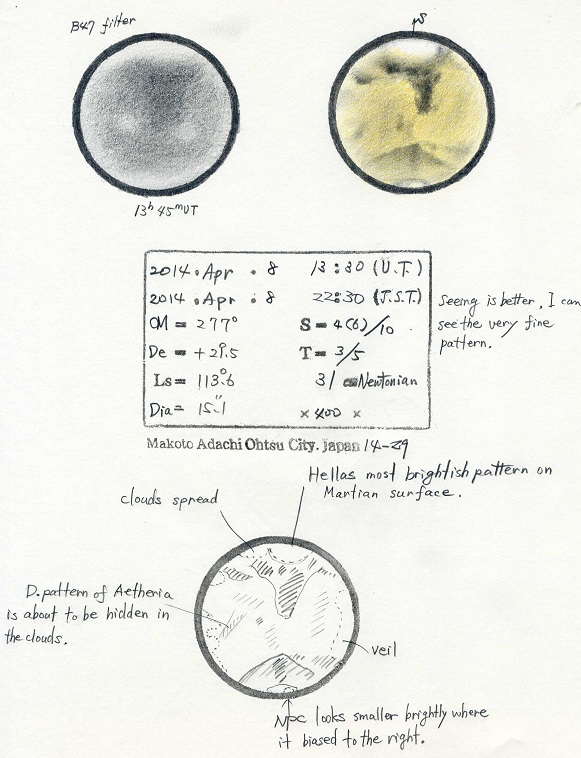 B47 filter
μS
13h 45m UT
2014 . Apr . 8 13:30 (U.T.)
2014 . Apr . 8 22:30 (J.S.T.)
CM = 277°
S = 4(6)/10
De = +21°.5
T = 3/5
Ls = 113°.6
31 cm Newtonian
Dia = 15".1
× 400 ×
Seeing is better, I can
see the very fine
pattern.
Makoto Adachi Ohtsu City. Japan 14-29
Hellas most brightish pattern on
Martian surface.
clouds spread
D.pattern of Aetheria
is about to be hidden in
the clouds.
veil
NPC looks smaller brightly where
it biased to the right.